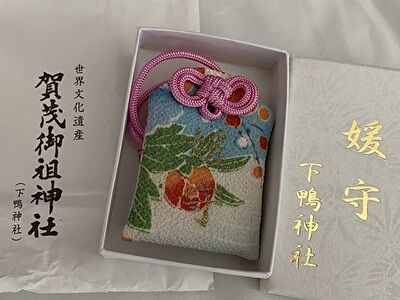 世界文化遺産
賀茂御祖神社
(下鴨神社)
媛守
下鴨神社